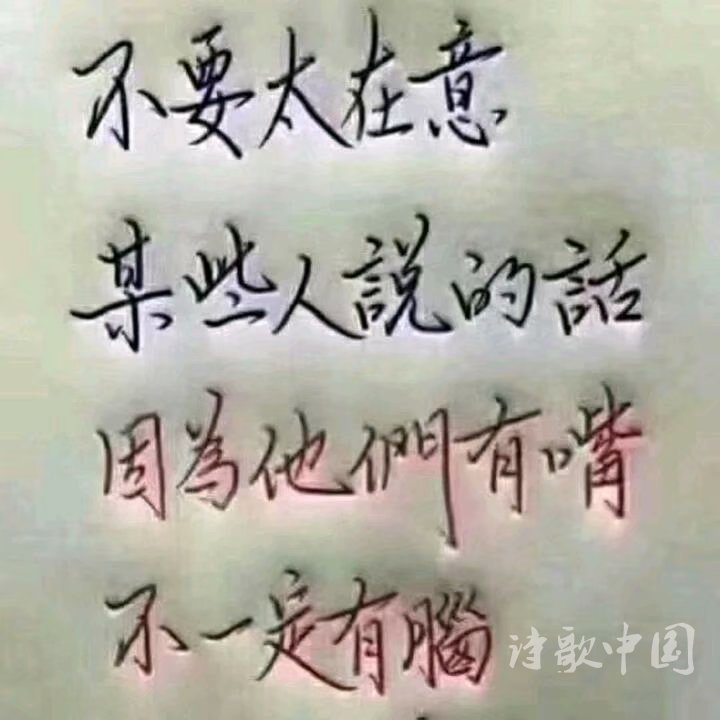 不要太在意
某些人說的話
因為他們有嘴
不一定有腦
诗歌中国